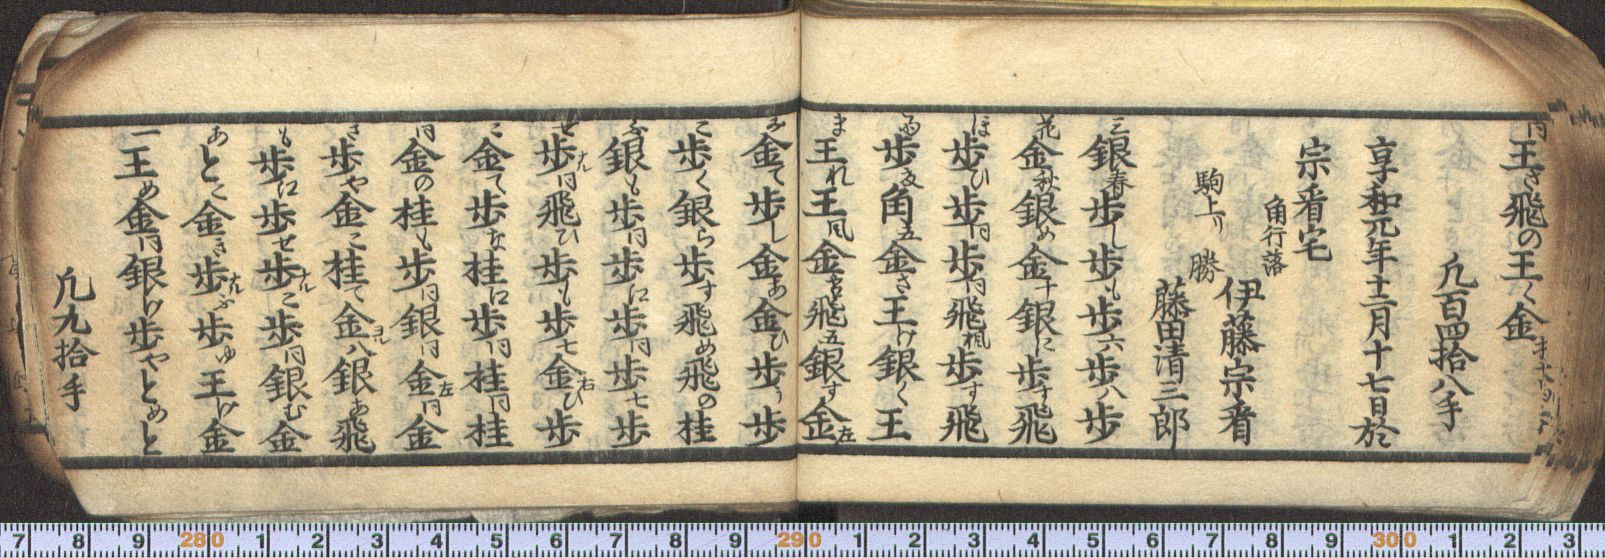 同王さ飛の王く金
凡百四拾八手
享和元年十二月十七日於
宗看宅
角行落 伊藤宗看
駒上り 勝 藤田清三郎
三銀春歩し歩も歩六歩八歩
花金秋銀め金十銀に歩す飛
ほ歩ひ歩同歩同飛楓歩す飛
歩夜角五金さ王け銀く王
ま王れ王風金宮飛五銀す金左
み金て歩し金あ金ひ歩う歩
こ歩く銀ら歩す飛め飛の桂
ふ銀も歩同歩に歩同歩七歩
せ歩同飛ひ歩も歩七金右ひ歩
こ金て歩な桂に歩同桂同桂
同金の桂も歩同銀同金左同金
さ歩や金こ桂て金八銀あ飛
も歩に歩せ歩こ歩同銀む金
あとこ金き歩ふ歩ゆ王け金
一王め金同銀け歩やとめと
凡九拾手
7 8 9 280 1 2 3 4 5 6 7 8 9 290 1 2 3 4 5 6 7 8 9 300 1 2 3